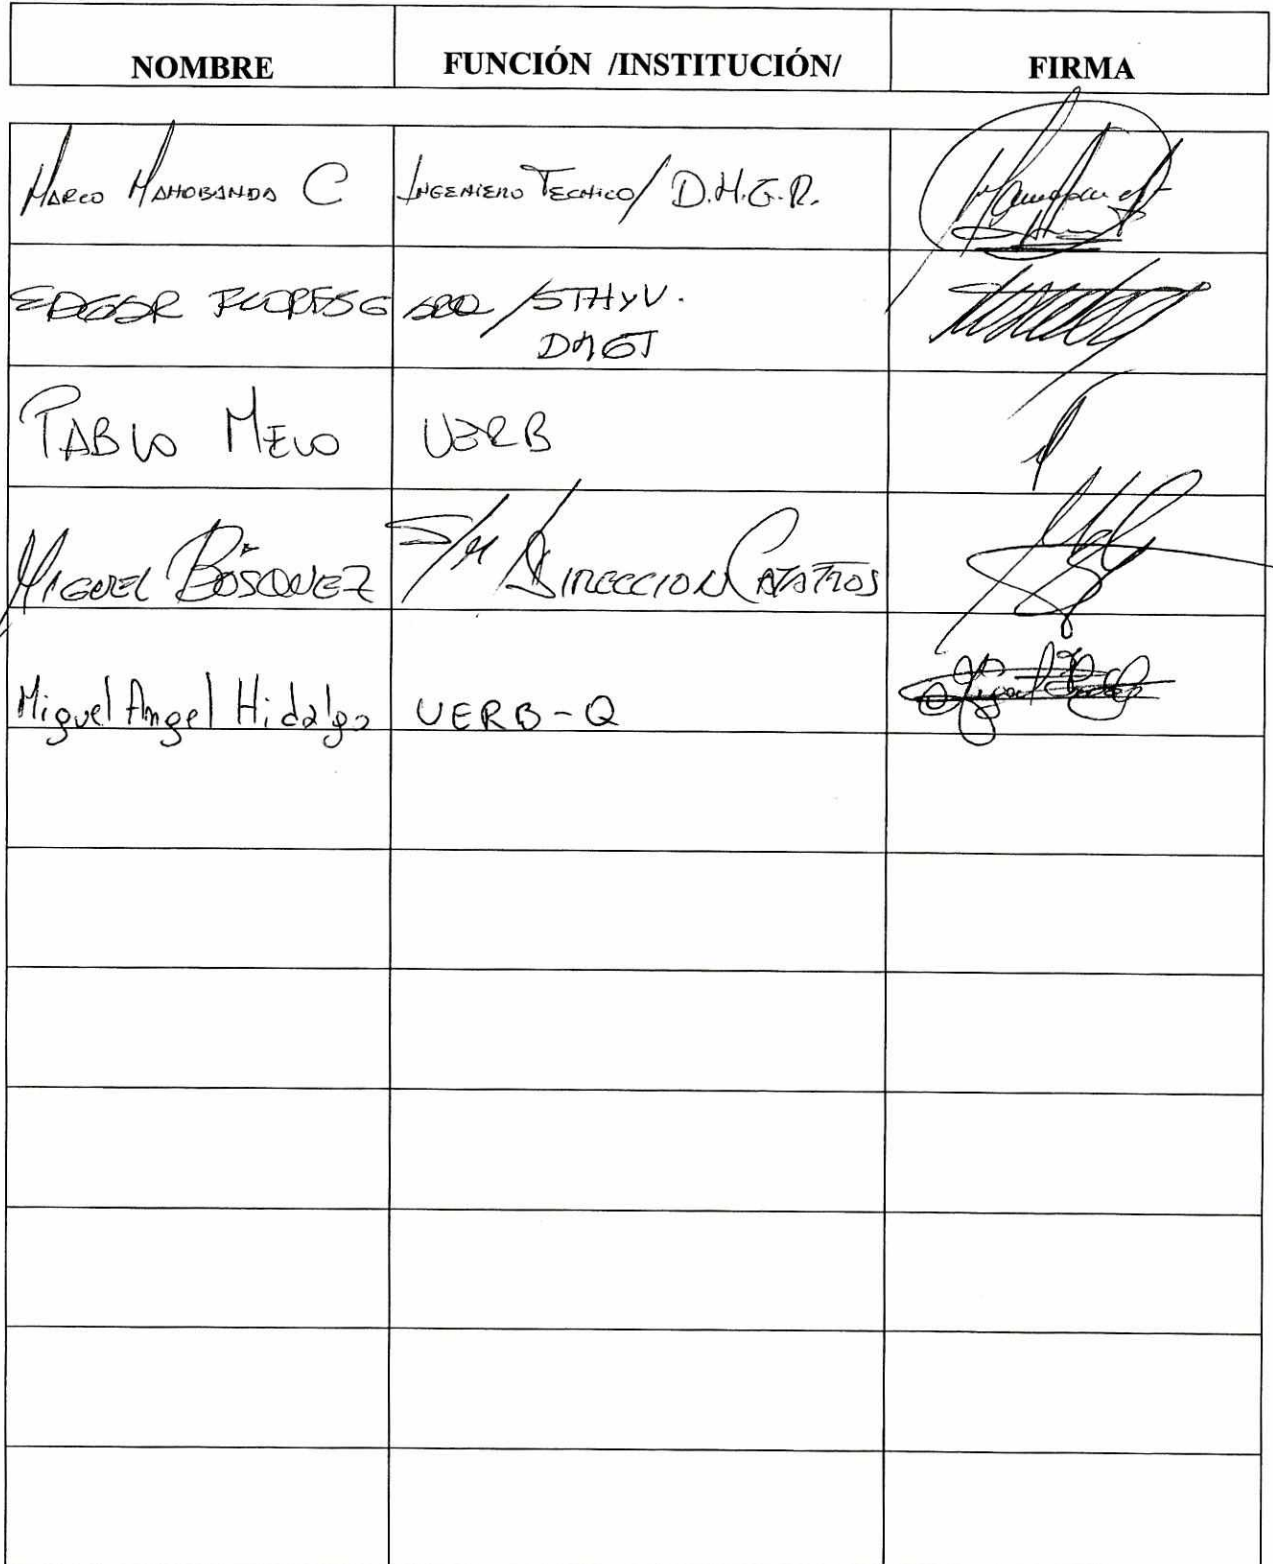 NOMBRE FUNCIÓN /INSTITUCIÓN/ FIRMA
MARCO MANOBANDA C INGENIERO TECNICO / D.M.G.R.
EDGAR FLORES G /STHyV.
DMGT
PABLO MELO UERB
MIGUEL BÓSQUEZ DIRECCION CATASTROS
Miguel Angel Hidalgo UERB-Q